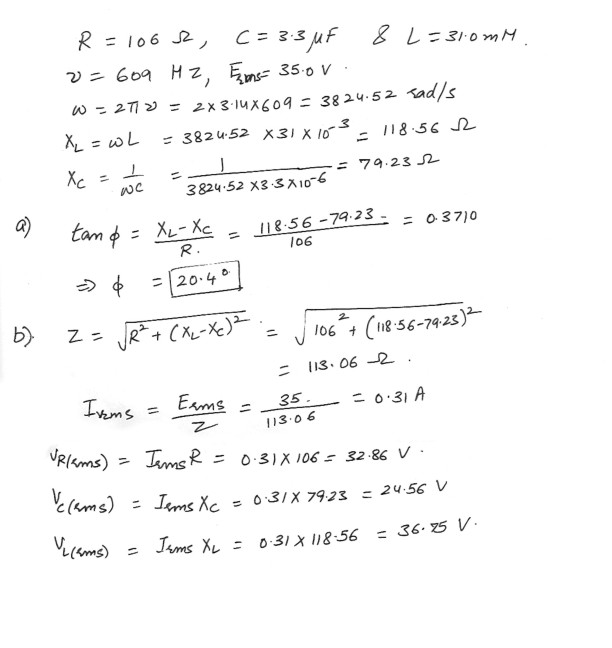 R = 106 Ω, C = 3.3 μF & L = 31.0 mH.
ν = 609 HZ, Erms = 35.0 V.
ω = 2πν = 2×3.14×609 = 3824.52 rad/s
XL = ωL = 3824.52 × 31 × 10⁻³ = 118.56 Ω
XC = 1/ωC = 1/3824.52 × 3.3 × 10⁻⁶ = 79.23 Ω
a) tan ϕ = XL - XC / R. = 118.56 - 79.23 / 106 = 0.3710
⇒ ϕ = 20.4°
b). Z = √R² + (XL - XC)² = √106² + (118.56 - 79.23)²
= 113.06 Ω.
Irms = Erms / Z = 35. / 113.06 = 0.31 A
VR(rms) = Irms R = 0.31 × 106 = 32.86 V.
VC(rms) = Irms XC = 0.31 × 79.23 = 24.56 V
VL(rms) = Irms XL = 0.31 × 118.56 = 36.75 V.